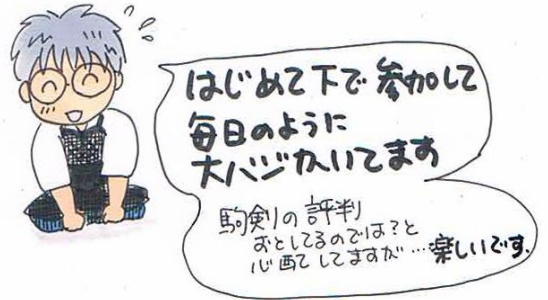 はじめて下で参加して
毎日のように
大ハジかいてます
駒剣の評判
おとしてるのでは?と
心配してますが…楽しいです。